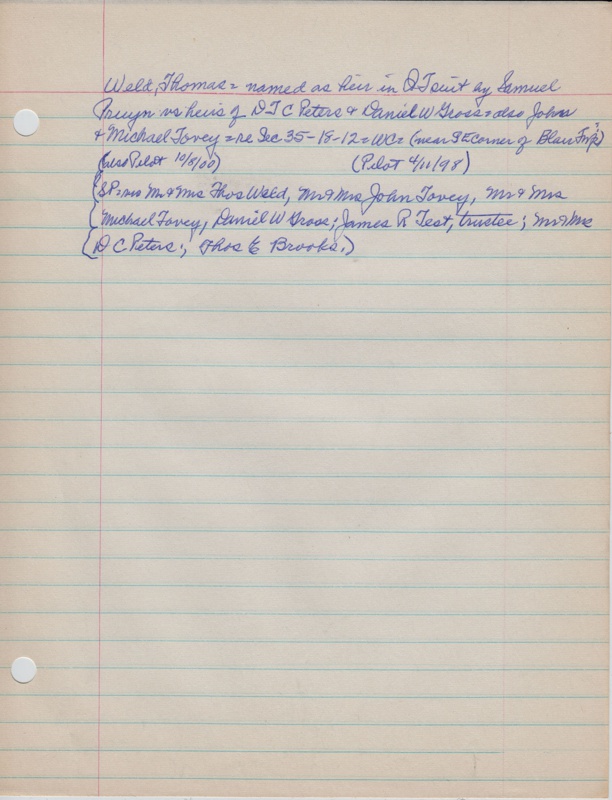 Weld, Thomas = named as heir in Q T suit by Samuel
Pruyn vs heirs of D T C Peters & Daniel W Gross = also John
& Michael Tovey = re Sec 35-18-12 = WC = (near SE corner of Blair Twp?)
(also Pilot 10/8/00) (Pilot 4/11/98)
(SP = Mr & Mrs Thos Weld, Mr & Mrs John Tovey, Mr & Mrs
(Michael Tovey, Daniel W Gross; James R Test, trustee; Mr & Mrs
(D C Peters; Thos E Brooks.)